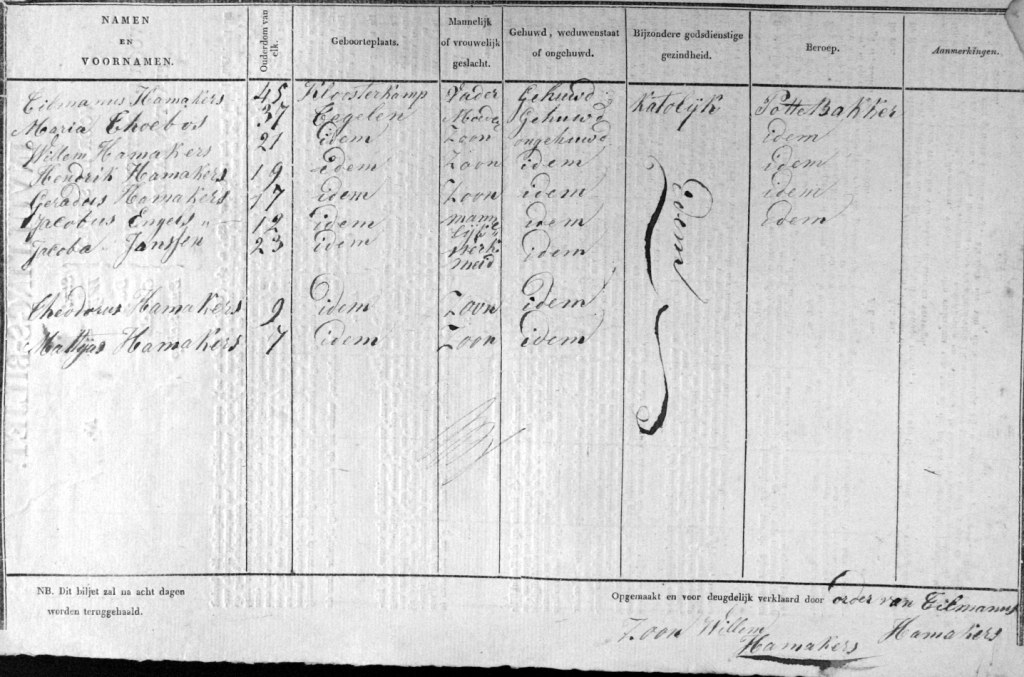 NAMEN EN VOORNAMEN. Ouderdom van elk. Geboorteplaats. Mannelijk of vrouwelijk geslacht. Gehuwd, weduwenstaat of ongehuwd. Bijzondere godsdienstige gezindheid. Beroep. Aanmerkingen.
Tilmanus Hamakers 45 Kloosterkamp Vader Gehuwd Katolijk Potte Bakker
Maria Thoebos 37 Tegelen Moeder Gehuwd
Willem Hamakers 21 idem Zoon ongehuwd idem
Hendrik Hamakers 19 idem Zoon idem idem
Geradus Hamakers 17 idem Zoon idem idem
Jacobus Engels 12 idem mannelijke idem idem
Jacoba Janssen 23 idem Werk meid idem
Theodorus Hamakers 9 idem Zoon idem
Mattijas Hamakers 7 idem Zoon idem
NB. Dit biljet zal na acht dagen
worden teruggehaald.
Opgemaakt en voor deugdelijk verklaard door order van Tilmanus
Hamakers
Zoon Willem
Hamakers